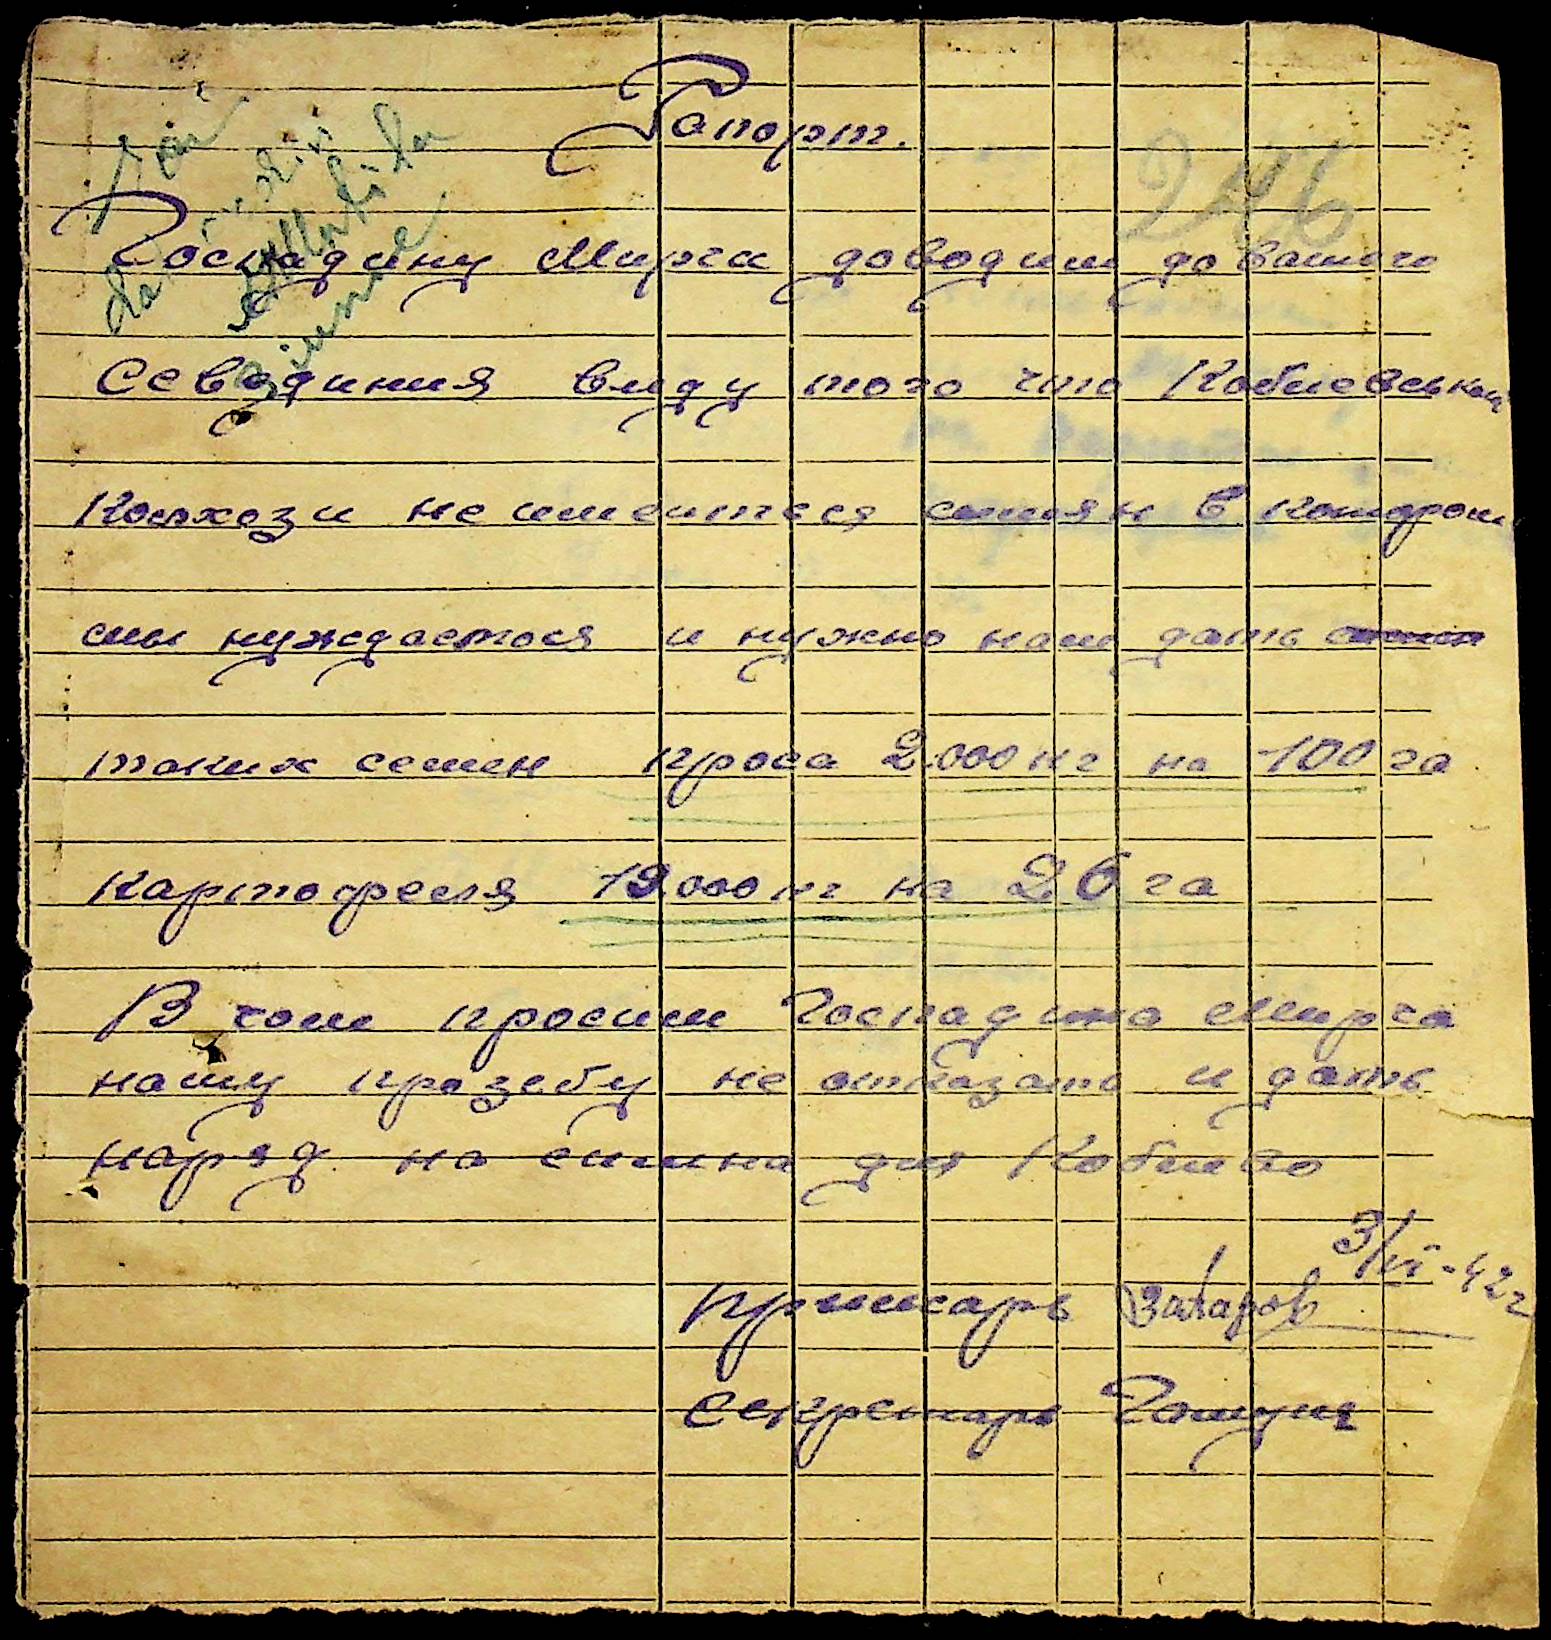 Рапорт.
246
Госпадину Мирча доводим до вашого
Севединия ввиду того что Коблевськой
Колхози не имеиться симян в котором
мы нуждаемося и нужно нам дать
таких семен проса 2.000 кг на 100 га
картофеля 19.000 кг на 26 га
В чом просим Госпадина Мирча
нашу прозьбу не отказать и дать
наряд на симина для Коблево
3/VI-42 г
Примарь Захаров
Секретарь